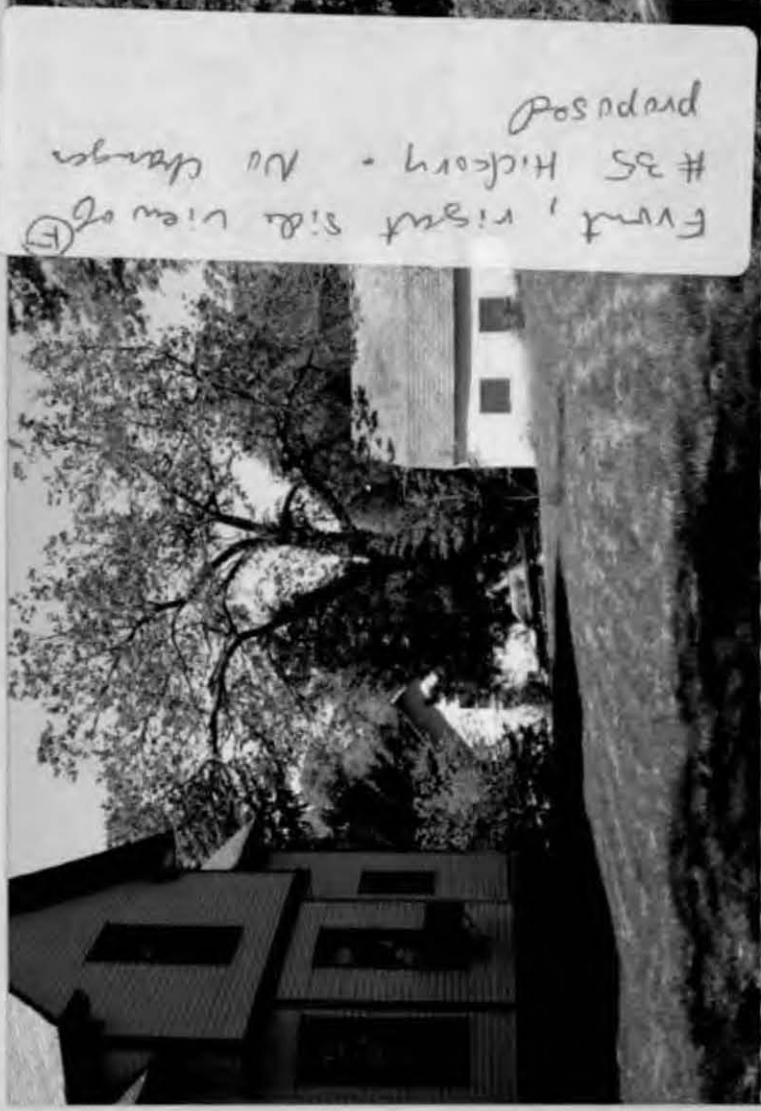 Front, right side view of
# 35 Hickory. No changes
proposed